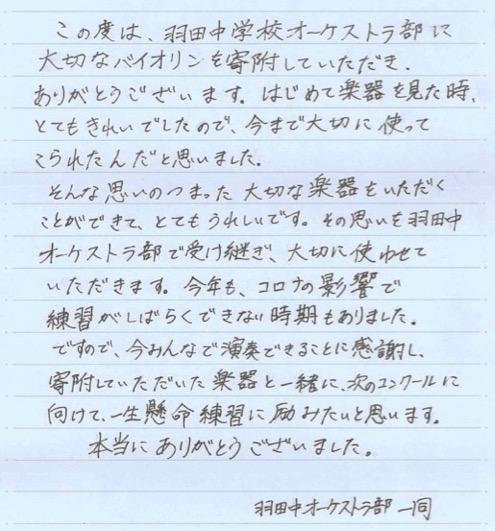 この度は、羽田中学校オーケストラ部に
大切なバイオリンを寄附していただき、
ありがとうございます。はじめて楽器を見た時、
とてもきれいでしたので、今まで大切に使って
こられたんだと思いました。
そんな思いのつまった大切な楽器をいただく
ことができて、とてもうれしいです。その思いを羽田中
オーケストラ部で受け継ぎ、大切に使わせて
いただきます。今年も、コロナの影響で
練習がしばらくできない時期もありました。
ですので、今みんなで演奏できることに感謝し、
寄附していただいた楽器と一緒に、次のコンクールに
向けて、一生懸命練習に励みたいと思います。
本当にありがとうございました。
羽田中オーケストラ部一同